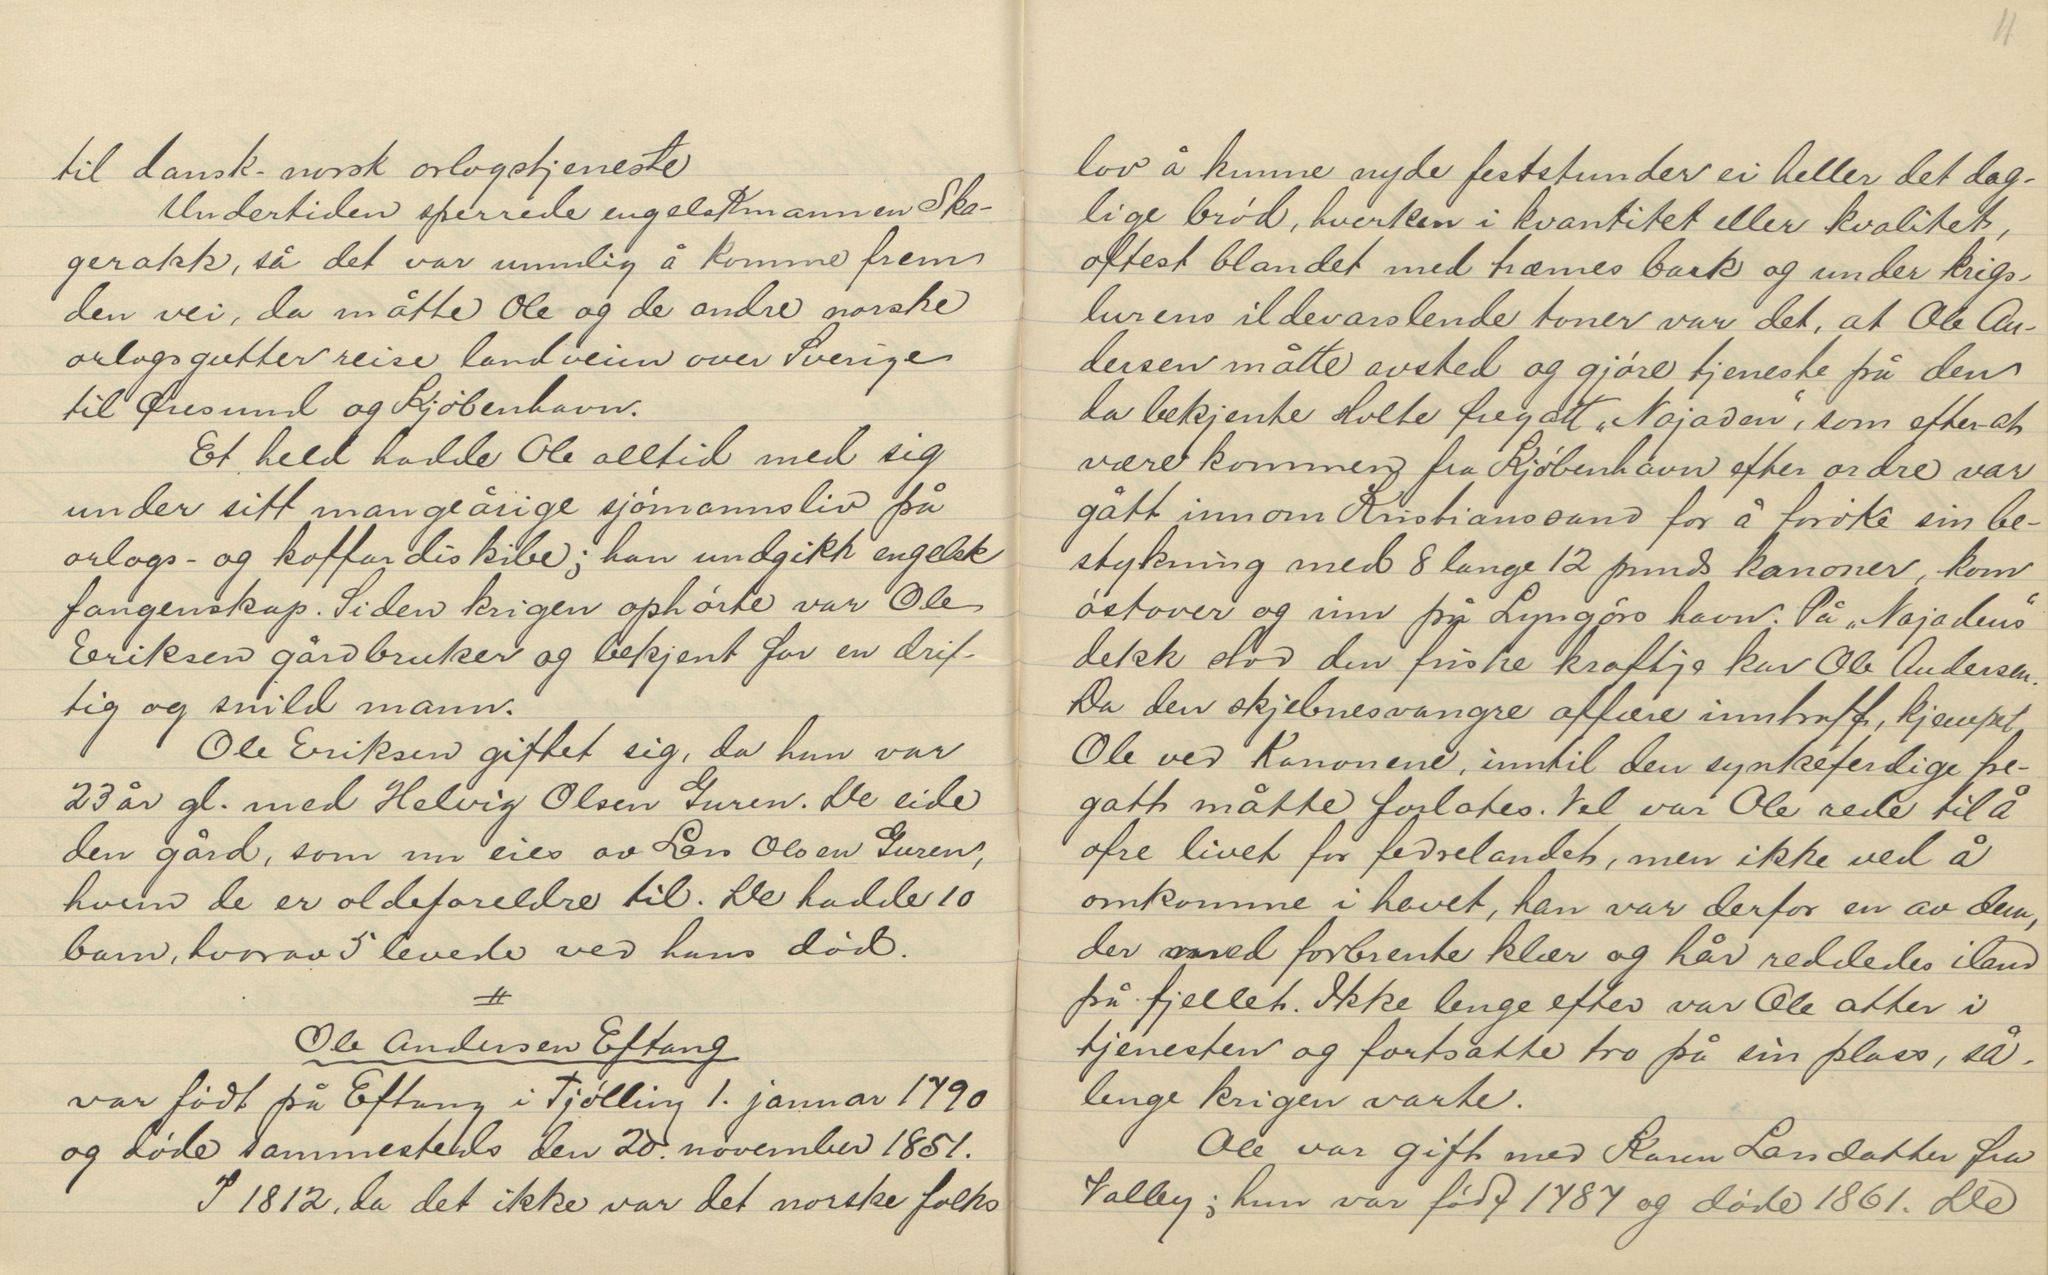 til dansk-norsk orlogstjeneste
Undertiden sperrede engelskmannen Ska-
gerakk, så det var umulig å komme frem
den vei, da måtte Ole og de andre norske
orlogsgutter reise landveien over Sverige
til Øresund og Kjöbenhavn.
Et held hadde Ole alltid med sig
under sitt mangeårige sjömannsliv på
orlogs- og koffardiskibe; han undgikk engelsk
fangenskap. Siden krigen ophörte var Ole
Eriksen gårdbruker og bekjent for en drif-
tig og snild mann.
Ole Eriksen giftet sig, da han var
23 år gl. med Helvig Olsen Guren. De eide
den gård, som nu eies av Lars Olsen Guren,
hvem de er oldeforeldre til. De hadde 10
barn, hvorav 5 levede ved hans död.
#
Ole Andersen Eftang
var födt på Eftang i Tjölling 1. januar 1790
og döde sammesteds den 20. november 1851.
I 1812, da det ikke var det norske folks
11
lov å kunne nyde feststunder ei heller det dag-
lige bröd, hverken i kvantitet eller kvalitet,
oftest blandet med trærnes bark og under krigs-
lurens ildevarslende toner var det, at Ole An-
dersen måtte avsted og gjöre tjeneste på den
da bekjente stolte fregatt „Najaden“, som efter at
være kommen fra Kjöbenhavn efter ordre var
gått innom Kristianssand for å foröke sin be-
stykning med 8 lange 12 punds kanoner, kom
östover og inn på Lyngörs havn. På „Najadens“
dekk stod den friske kraftje kar Ole Andersen.
Da den skjebnesvangre affære inntraff, kjempet
Ole ved Kanonene, inntil den synkeferdige fre-
gatt måtte forlates. Vel var Ole rede til å
ofre livet for fedrelandet, men ikke ved å
omkomme i havet, han var derfor en av dem,
der med forbrente klær og hår reddedes iland
på fjellet. Ikke lenge efter var Ole atter i
tjenesten og fortsatte tro på sin plass, så-
lenge krigen varte.
Ole var gift med Karen Larsdatter fra
Valley; hun var född 1787 og döde 1861. De